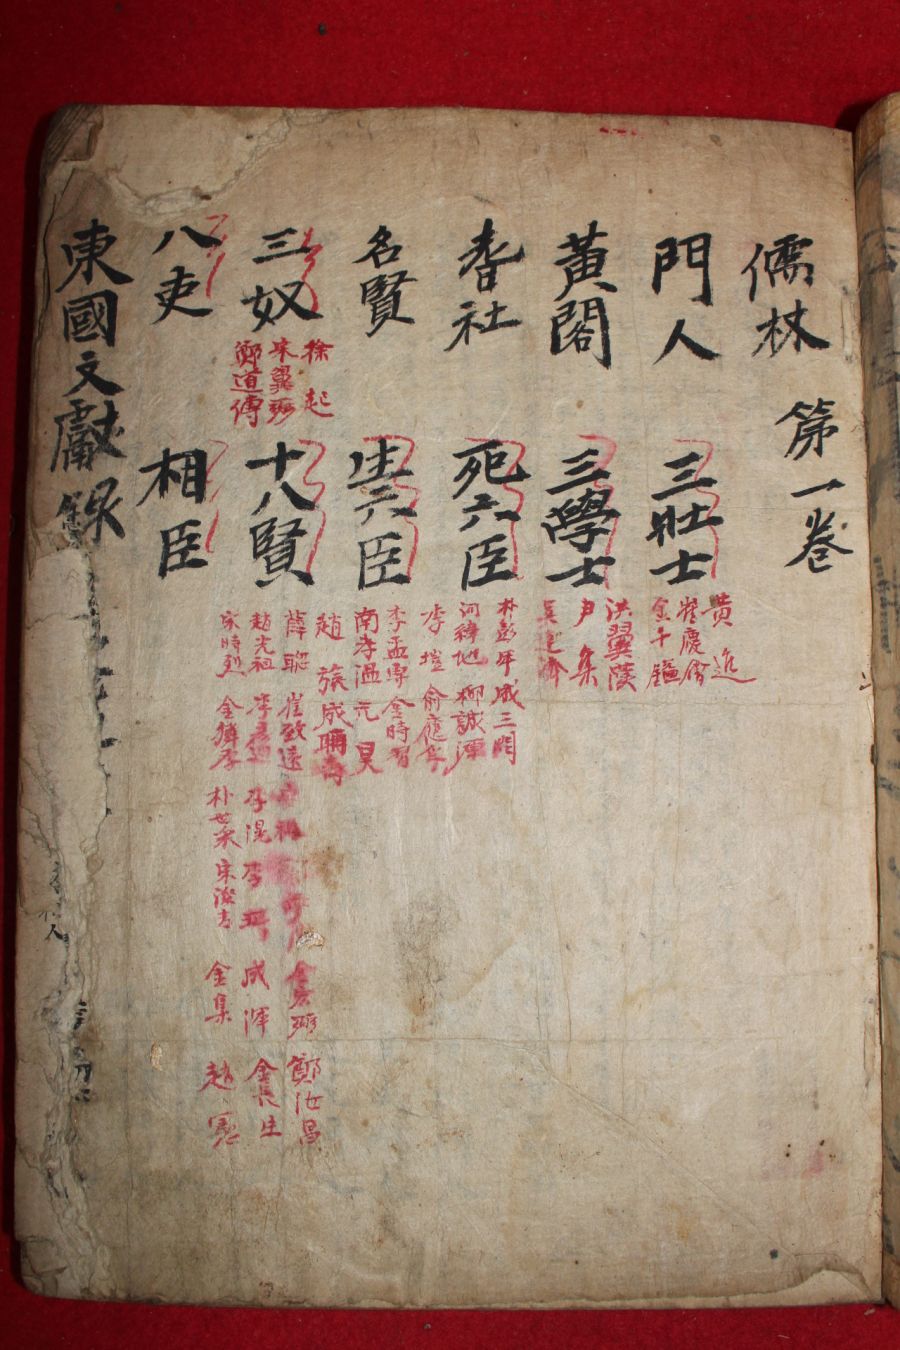 儒林 第一卷
門人 三壯士
黃進
崔慶會
金千鎰
黃閣 三學士
洪翼漢
尹集
吳達濟
耆社 死六臣
朴彭年 成三問
河緯地 柳誠源
李塏 俞應孚
名賢 生六臣
李孟專 金時習
南孝溫 元昊
趙旅 成聃壽
三奴
徐起
宋翼弼
鄭道傳
十八賢
薛聰 崔致遠 鄭汝昌
趙光祖 李彥迪 李滉 李珥 成渾 金長生
宋時烈 金麟厚 朴世采 宋浚吉 金集 趙憲
八吏 相臣
東國文獻錄